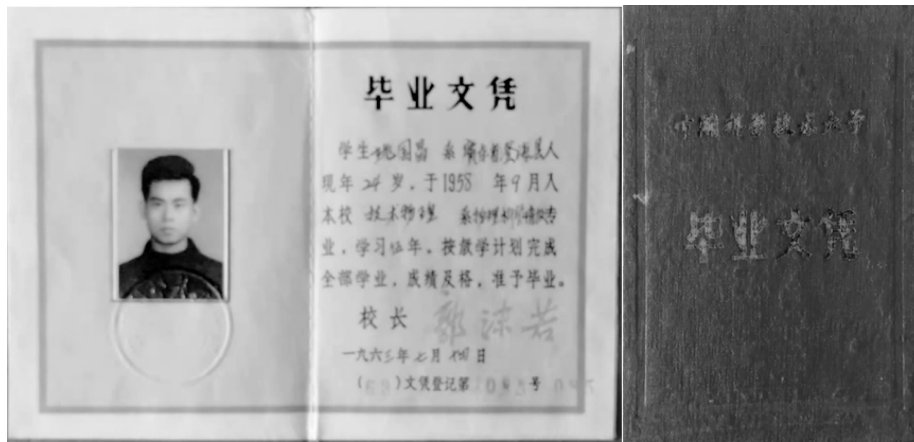 毕业文凭
学生 国昌 系 人
现年24岁，于1958 年9月入
本校 技术物理 系 专
业，学习伍年。按教学计划完成
全部学业，成绩及格，准予毕业。
校长 郭沫若
一九六三年七月 日
( )文凭登记第 号
中国科学技术大学
毕业文凭